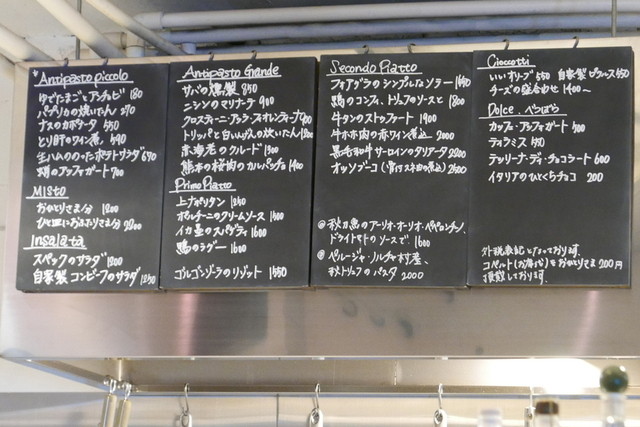 Antipasto piccolo
ゆでたまごとアンチョビ 180
パプリカの焼いたん 270
ナスのカポナータ 550
とり肝のワイン煮 590
生ハムののったポテトサラダ 670
鞘のアッフォガート 700
Misto
おひとりさま分 1200
ひと皿におふたりさま分 2200
Insalata
スペックのサラダ 1200
自家製コンビーフのサラダ 1250
Antipasto Grande
サバの燻製 950
ニシンのマリナーテ 900
クロスティーニ・アッラ・フィオレンティーナ 900
トリッパと白いんげんの炊いたん 1200
赤海老のクルード 1300
熊本の桜肉のカルパッチョ 1400
Primo Piatto
上ナポリタン 1250
ポルチーニのクリームソース 1500
イカ墨のスパゲティ 1600
鴨のラグー 1600
ゴルゴンゾーラのリゾット 1550
Secondo Piatto
フォアグラのシンプルなソテー 1650
鴨のコンフィ、トリュフのソースと 1800
牛タンのストゥファート 1900
牛ホホ肉の赤ワイン煮込 2000
黒毛和牛サーロインのタリアータ 2200
オッソブーコ(骨付スネ肉の煮込) 2500
◎秋刀魚のアーリオ・オーリオ・ペペロンチーノ、
ドライトマトのソースで 1600
◎ペルージャ・ノルチャ村産、
秋トリュフのパスタ 2000
Cicciotti
いい オリーブ 550 自家製ピクルス 550
チーズの盛合わせ 1400〜
Dolce、べつばら
カッフェ・アッフォガート 500
ティラミス 550
テッリーナ・ディ・チョコラート 600
イタリアのひとくちチョコ 200
外税表記となっております。
コペルト(お席代)をおひとりさま200円
頂戴しております。